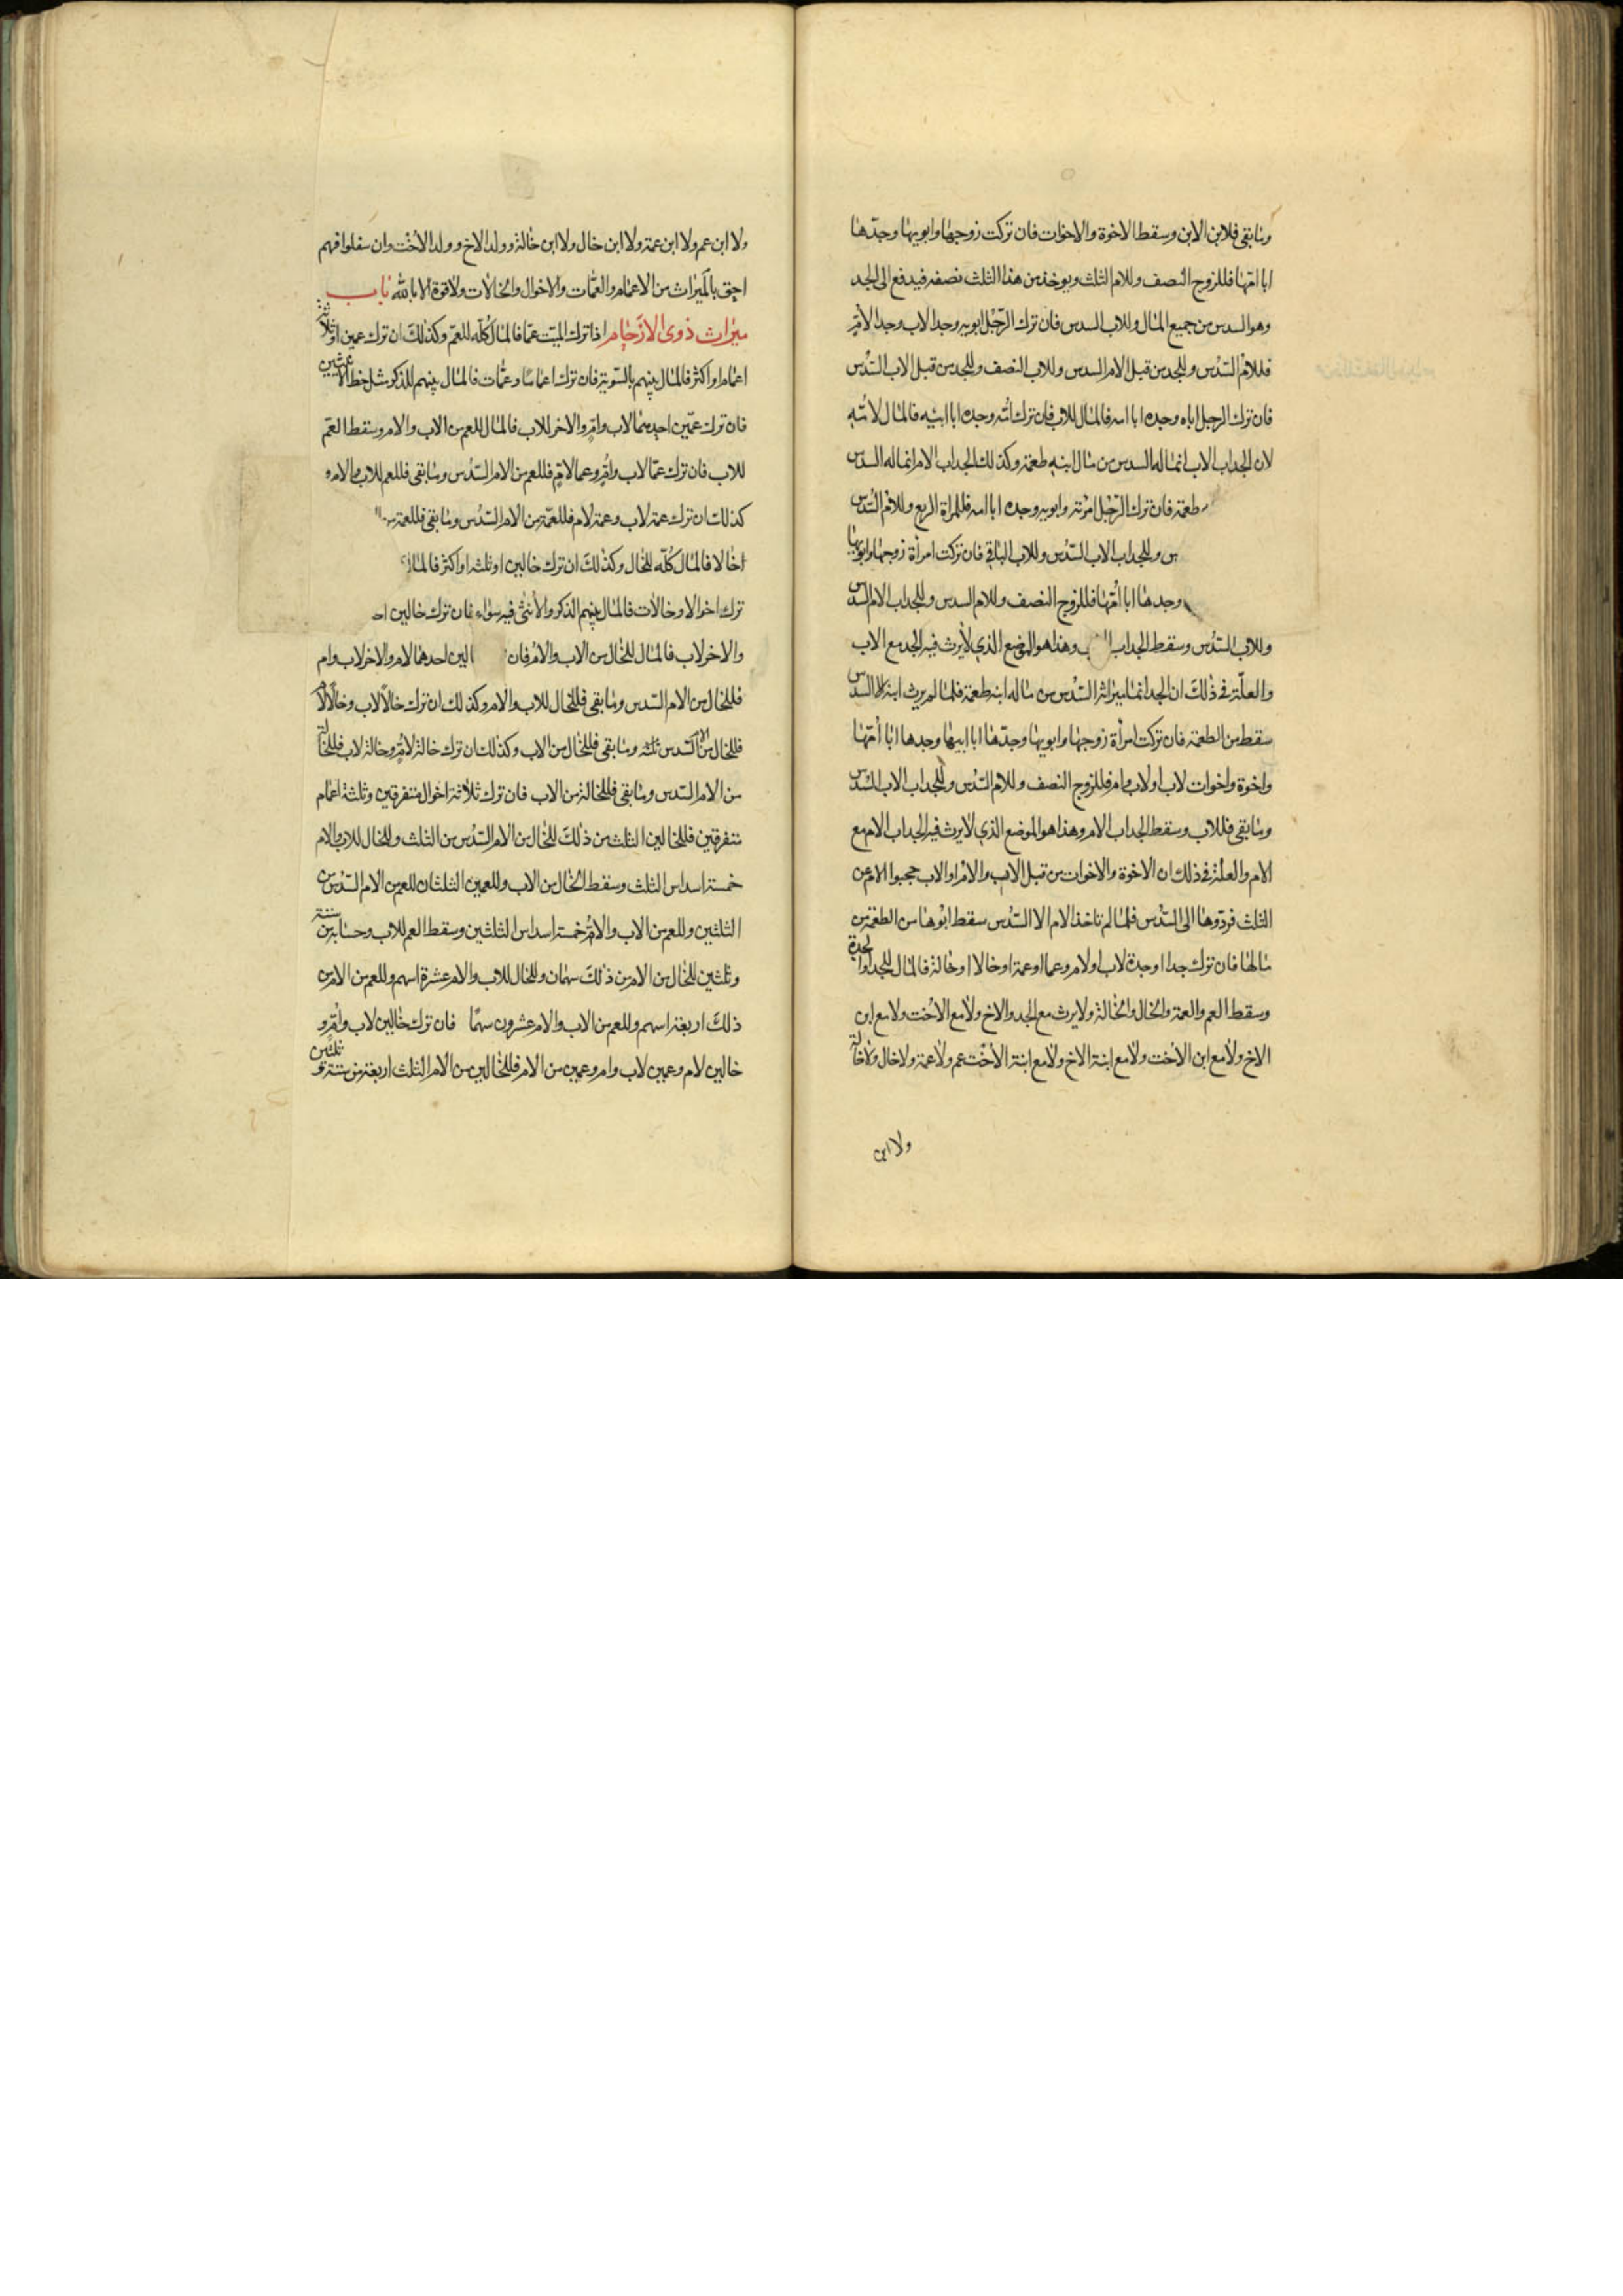 وما بقى فلابن الابن وسقط الاخوة والاخوات فان تركت زوجها وابويها وجدها
ابا امّها فللزوج النصف وللام الثلث ويوخذ من هذا الثلث نصفه فيدفع الى الجد
وهو السدس من جميع المال وللاب السدس فان ترك الرّجل ابويه وجدا لاب وجدا لامّ
فللامّ السّدس وللجد من قبل الام السدس وللاب النصف وللجد من قبل الاب السّدس
فان ترك الرجل اباه وجده ابا امه فالمال للاب فان ترك امّه وجده ابا ابيه فالمال لامّه
لان الجد اب الاب انما له السدس من مال ابنه طعمة وكذلك الجد اب الام انما له السدس
طعمة فان ترك الرّجل امرته وابويه وجده ابا امه فللمراة الربع وللامّ السّدس
وللجد اب الاب السّدس وللاب الباقى فان تركت امرأة زوجها وابويها
وجدها ابا امّها فللزوج النصف وللام السدس وللجد اب الام السدس
وللاب السّدس وسقط الجد اب وهذا هو الموضع الذي لا يرث فيه الجد مع الاب
والعلّة فى ذلك ان الجد انما ميراثه السّدس من مال ابنه طعمة فلما لم يرث ابنه الا السدس
سقط من الطعمة فان تركت امرأة زوجها وابويها وجدّها ابا ابيها وجدها ابا امّها
واخوة واخوات لاب او لاب وام فللزوج النصف وللامّ السّدس وللجد اب الاب السّدس
وما بقى فللاب وسقط الجد اب الام وهذا هو الموضع الذي لا يرث فيه الجد اب الام مع
الام والعلة فى ذلك ان الاخوة والاخوات من قبل الاب والام او الاب حجبوا الام عن
الثلث فردّوها الى السّدس فلما لم تاخذ الام الا السّدس سقط ابوها من الطعمة من
مالها فان ترك جدا او جدة لاب او لام وعما او عمة او خالا او خالة فالمال للجد او الجدة
وسقط العم والعمة والخال والخالة ولا يرث مع الجد والاخ ولا مع الاخت ولا مع ابن
الاخ ولا مع ابن الاخت ولا مع ابنة الاخ ولا مع ابنة الاخت عم ولا عمة ولا خال ولا خالة
ولا ابن
ولا ابن عم ولا ابن عمة ولا ابن خال ولا ابن خالة وولد الاخ وولد الاخت وان سفلوا فهم
احق بالميراث من الاعمام والعمّات والاخوال والخالات ولا قوة الا بالله باب
ميراث ذوى الارحام اذا ترك الميّت عمّا فالمال كلّه للعمّ وكذلك ان ترك عمين او ثلاثة
اعمام او اكثر فالمال بينهم بالسّوية فان ترك اعماما وعمّات فالمال بينهم للذكر مثل حظ الانثيين
فان ترك عمّين احدهما لاب وامّ والاخر للاب فالمال للعم من الاب والام وسقط العم
للاب فان ترك عمّا لاب وامّ وعما لامّ فللعم من الام السّدس وما بقى فللعم للاب والام و
كذلك ان ترك عمة لاب وعمة لام فللعمّة من الام السّدس وما بقى فللعمة من
خالا فالمال كلّه للخال وكذلك ان ترك خالين او ثلثه او اكثر فالمال
ترك اخوالا وخالات فالمال بينهم الذكر والانثى فيه سواء فان ترك خالين احد
والاخر لاب فالمال للخال من الاب والام فان الين احدهما لام والاخر لاب وام
فللخال من الام السّدس وما بقى فللخال للاب والام وكذلك ان ترك خالا لاب وخالا لام
فللخال من الام السّدس وما بقى فللخال من الاب وكذلك ان ترك خالة لامّ وخالة لاب فللخالة
من الام السّدس وما بقى فللخالة من الاب فان ترك ثلاثة اخوال متفرقين وثلثة اعمام
متفرقين فللخالين الثلث من ذلك للخال من الام السّدس من الثلث وللخال للاب والام
خمسة اسداس الثلث وسقط الخال من الاب وللعمين الثلثان للعم من الام السّدس من
الثلثين وللعم من الاب والامّ خمسة اسداس الثلثين وسقط العم للاب وحسابه من ستة
وثلثين للخال من الام من ذلك سهمان وللخال للاب والام عشرة اسهم وللعم من الام من
ذلك اربعة اسهم وللعم من الاب والام عشرون سهمًا فان ترك خالين لاب وامّ و
خالين لام وعمين لاب وام وعمين من الام فللخالين من الام الثلث اربعة من ستة وثلثين